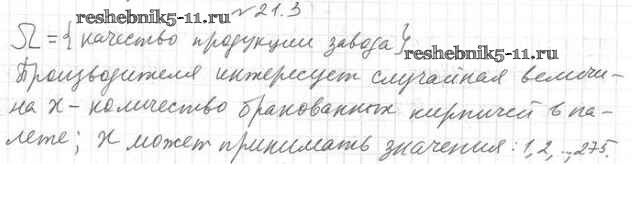 №21.3
reshebnik5-11.ru
Ω = {качество продукции завода}
reshebnik5-11.ru
Производителя интересует случайная величи-
на x - количество бракованных кирпичей в па-
лете; x может принимать значения: 1, 2, .., 275.